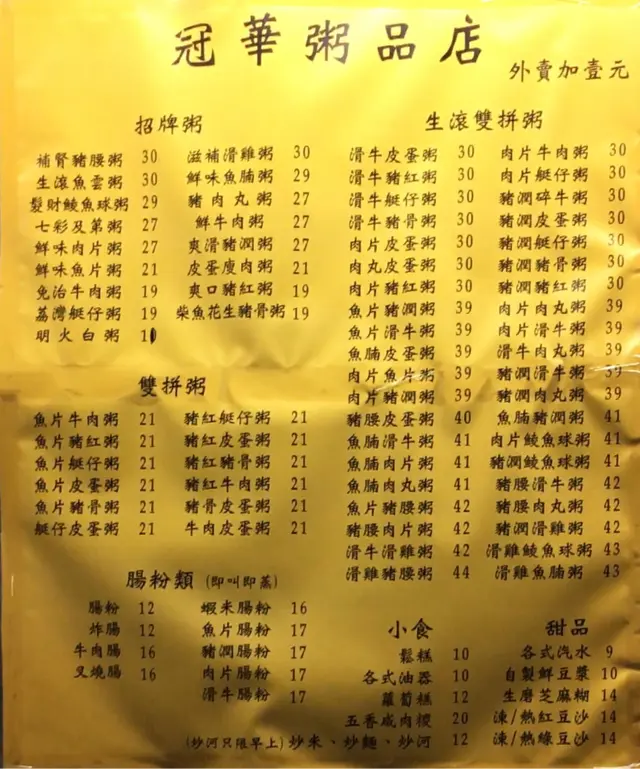 冠華粥品店
外賣加壹元
招牌粥
補腎豬腰粥 30
生滾魚雲粥 30
髮財鯪魚球粥 29
七彩及第粥 27
鮮味肉片粥 27
鮮味魚片粥 21
免治牛肉粥 19
荔灣艇仔粥 19
明火白粥 10
滋補滑雞粥 30
鮮味魚腩粥 29
豬肉丸粥 27
鮮牛肉粥 27
爽滑豬潤粥 27
皮蛋廋肉粥 21
爽口豬紅粥 19
柴魚花生豬骨粥 19
雙拼粥
魚片牛肉粥 21
魚片豬紅粥 21
魚片艇仔粥 21
魚片皮蛋粥 21
魚片豬骨粥 21
艇仔皮蛋粥 21
豬紅艇仔粥 21
豬紅皮蛋粥 21
豬紅豬骨粥 21
豬紅牛肉粥 21
豬骨皮蛋粥 21
牛肉皮蛋粥 21
腸粉類 (即叫即蒸)
腸粉 12
炸腸 12
牛肉腸 16
叉燒腸 16
蝦米腸粉 16
魚片腸粉 17
豬潤腸粉 17
肉片腸粉 17
滑牛腸粉 17
生滾雙拼粥
滑牛皮蛋粥 30
滑牛豬紅粥 30
滑牛艇仔粥 30
滑牛豬骨粥 30
肉片皮蛋粥 30
肉丸皮蛋粥 30
肉片豬紅粥 30
魚片豬潤粥 39
魚片滑牛粥 39
魚腩皮蛋粥 39
肉片魚片粥 39
肉片豬潤粥 39
豬腰皮蛋粥 40
魚腩滑牛粥 41
魚腩肉片粥 41
魚腩肉丸粥 41
魚片豬腰粥 42
豬腰肉片粥 42
滑牛滑雞粥 42
滑雞豬腰粥 44
肉片牛肉粥 30
肉片艇仔粥 30
豬潤碎牛粥 30
豬潤皮蛋粥 30
豬潤艇仔粥 30
豬潤豬骨粥 30
豬潤豬紅粥 30
肉片肉丸粥 39
肉片滑牛粥 39
滑牛肉丸粥 39
豬潤滑牛粥 39
豬潤肉丸粥 39
魚腩豬潤粥 41
肉片鯪魚球粥 41
豬潤鯪魚球粥 41
豬腰滑牛粥 42
豬腰肉丸粥 42
豬潤滑雞粥 42
滑雞鯪魚球粥 43
滑雞魚腩粥 43
小食
鬆糕 10
各式油器 10
蘿蔔糕 12
五香咸肉糉 20
(炒河只限早上) 炒米、炒麵、炒河 12
甜品
各式汽水 9
自製鮮豆漿 10
生磨芝麻糊 14
涷/熱紅豆沙 14
涷/熱綠豆沙 14